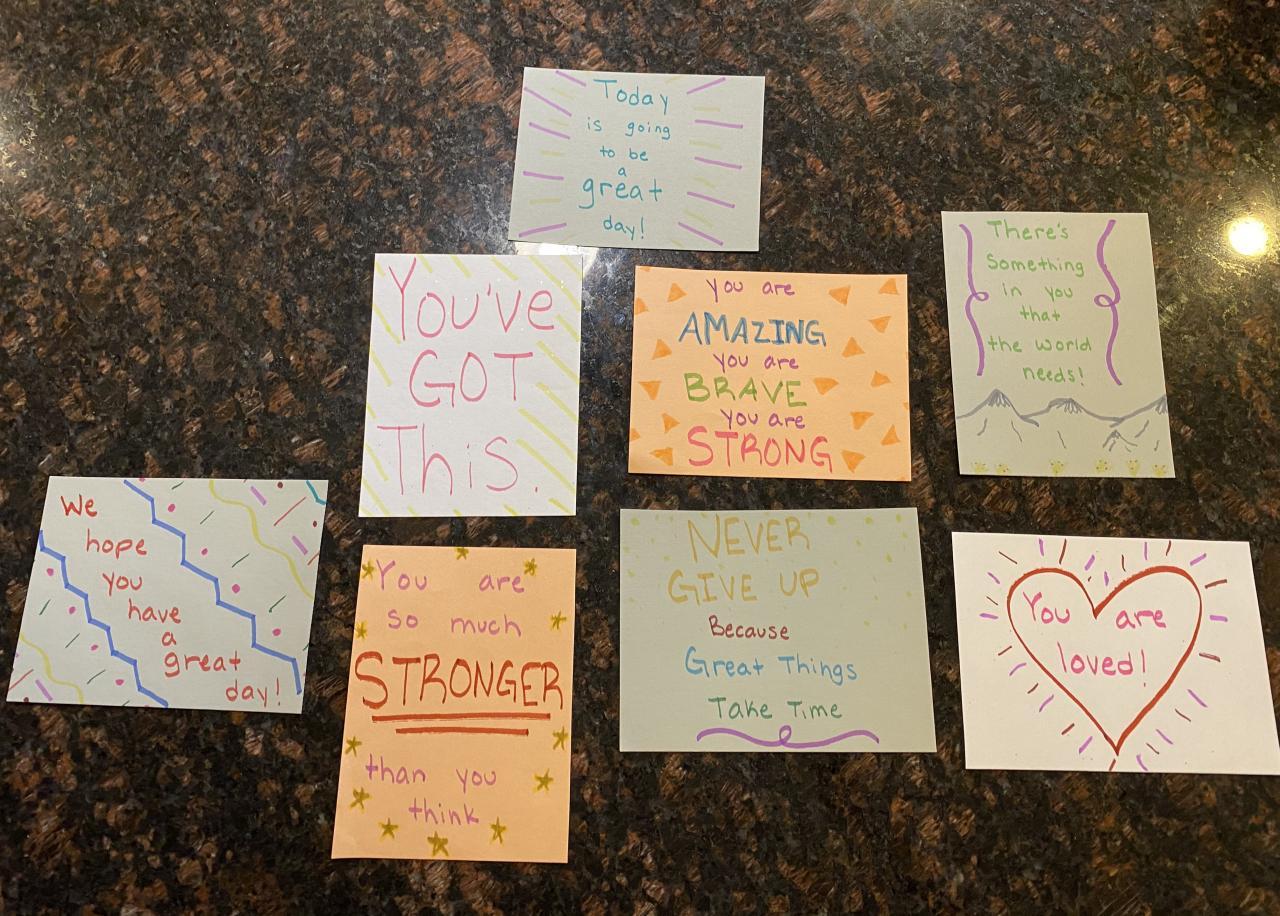 Today
is going
to be
a
great
day!
You've
GOT
This.
you are
AMAZING
you are
BRAVE
you are
STRONG
There's
Something
in you
that
the world
needs!
We
hope
you
have
a
great
day!
You are
so much
STRONGER
than you
think
NEVER
GIVE UP
Because
Great Things
Take Time
You are
loved!